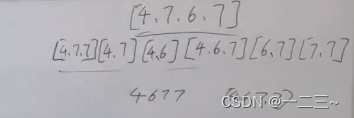 [4.7.6.7]
[4.7.7][4.7][4.6][4.6.7][6.7][7.7]
4677
CSDN @一二三~